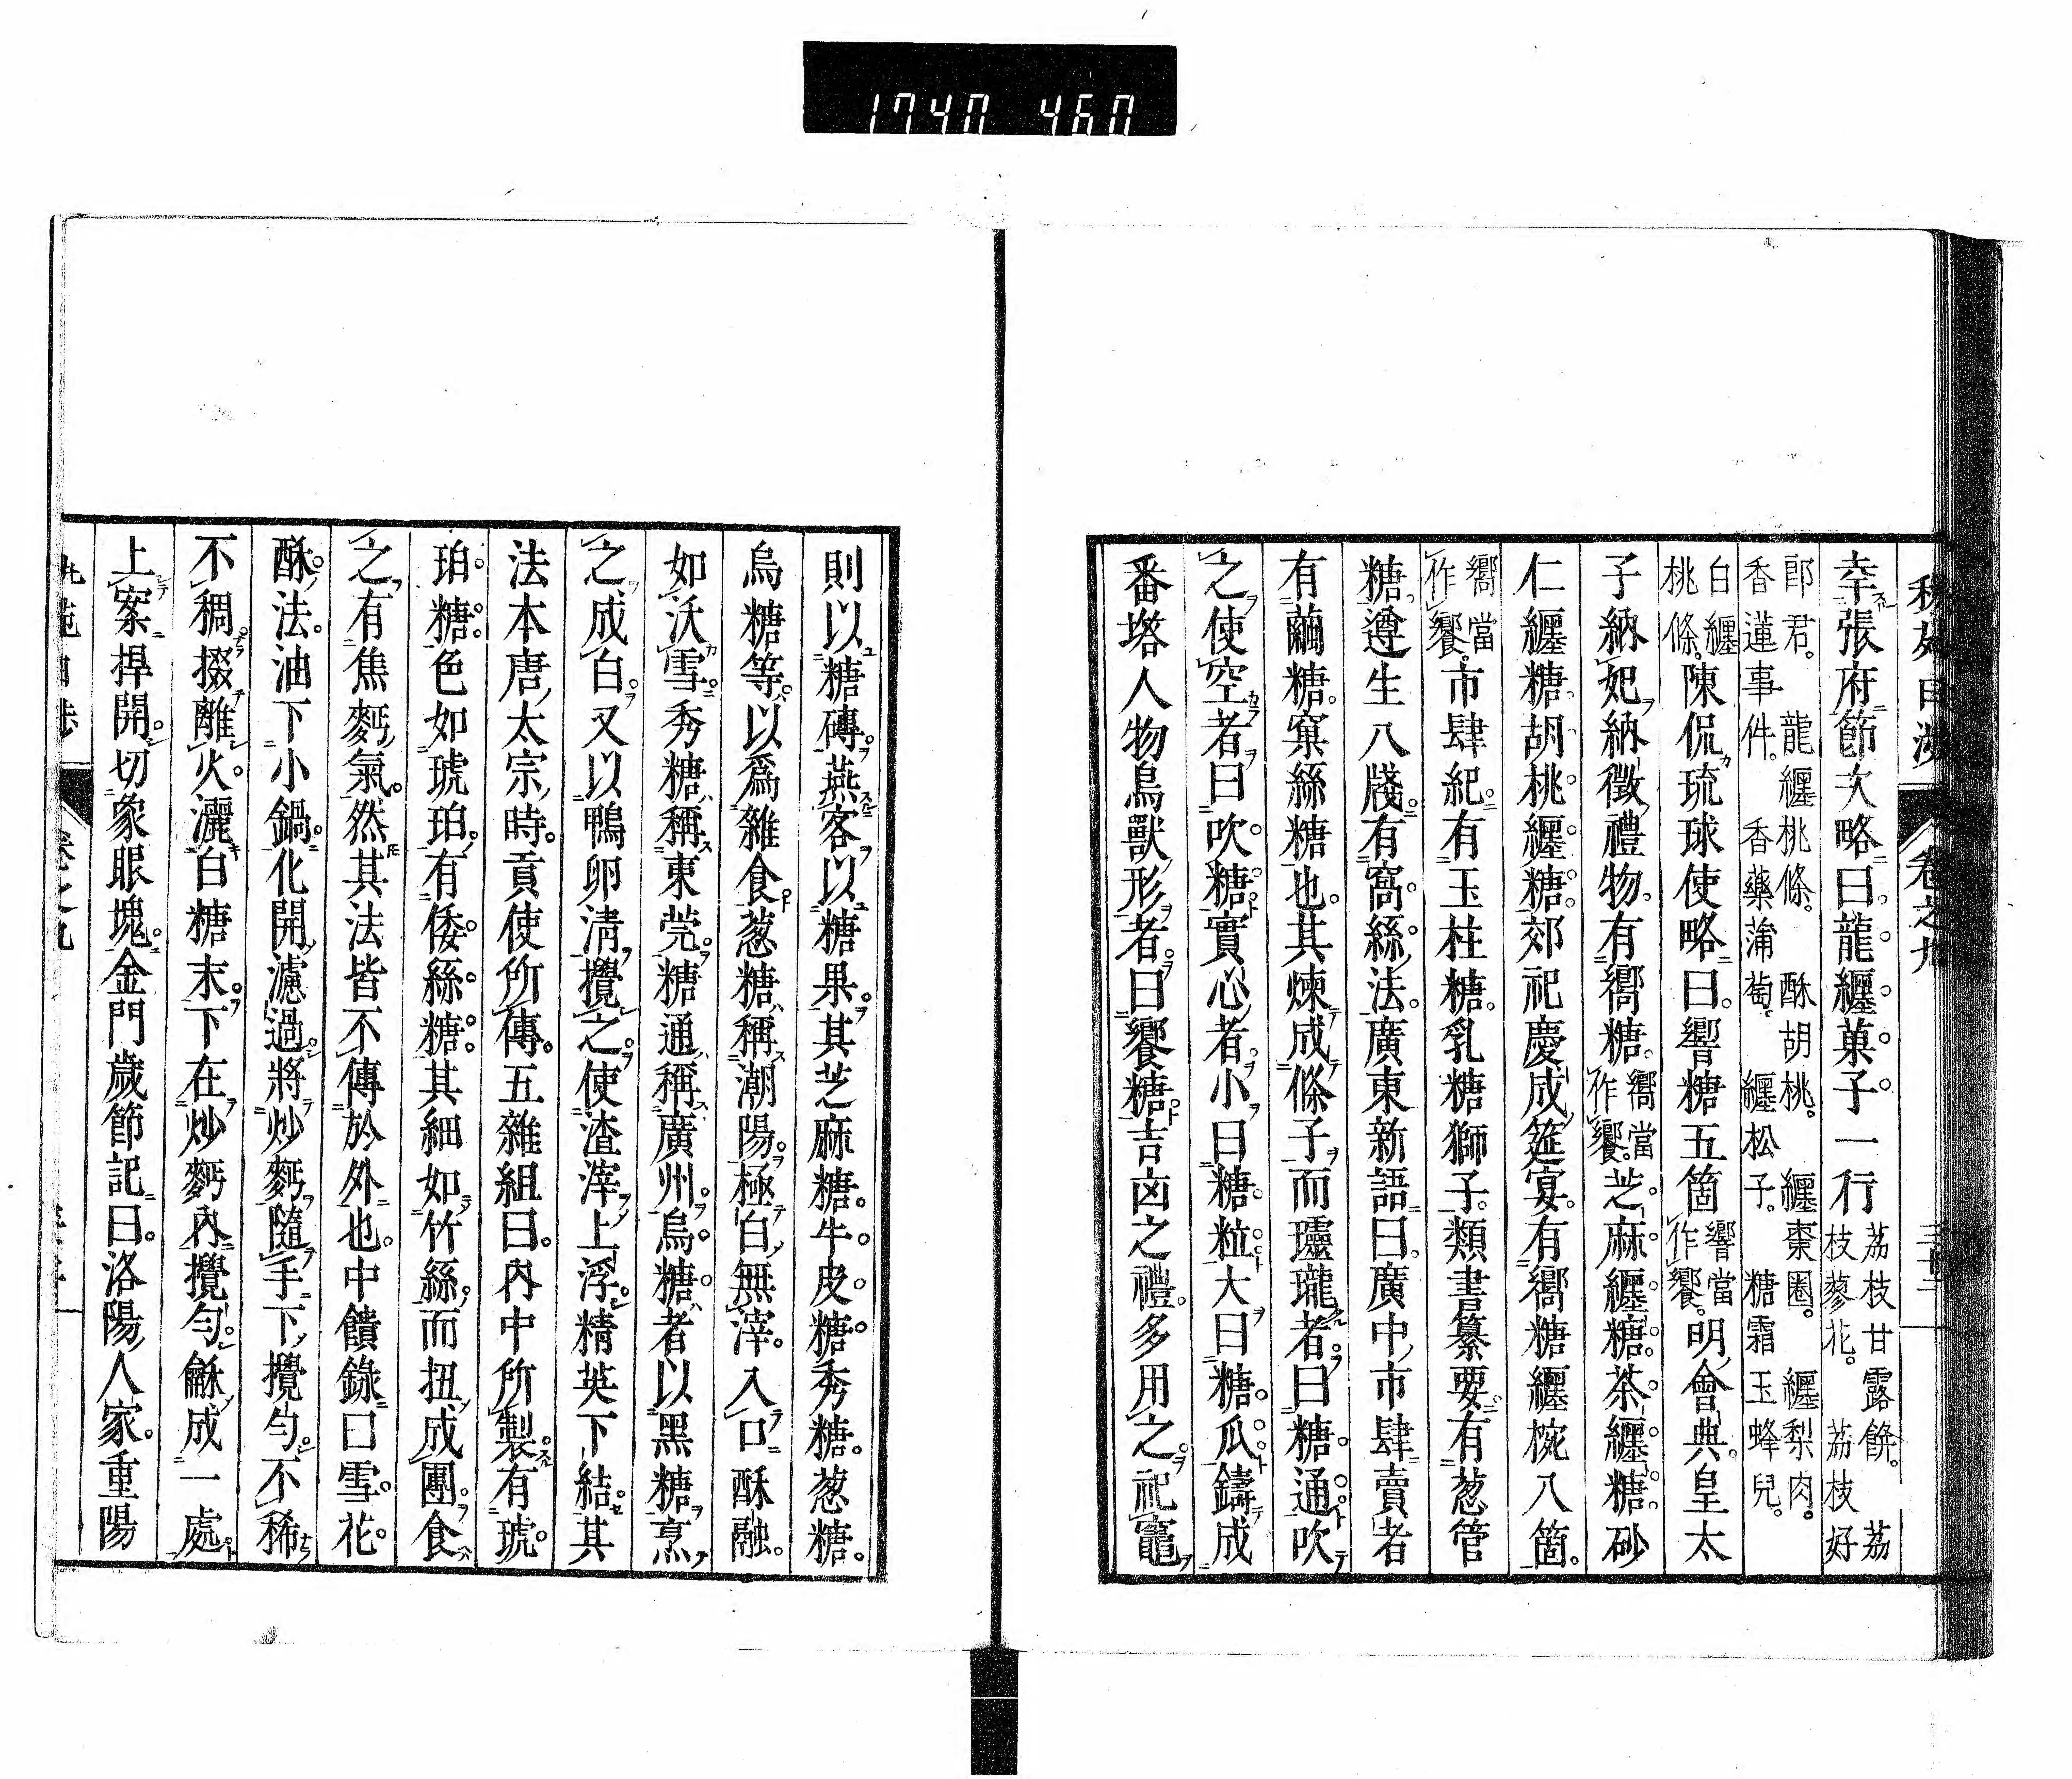 1740 460
幸張府節次略曰龍纏菓子一行荔枝甘露餅。荔枝蓼花。荔枝好
郎君。龍纏桃條。酥胡桃。纏棗圈。纏梨肉。香蓮事件。香藥蒲萄。纏松子。糖霜玉蜂兒。
白纏桃條。陳侃琉球使略曰。響糖五箇響當作饗。明會典皇太
子納妃納徵禮物。有嚮糖。嚮當作饗。芝麻纏糖。茶纏糖。砂
仁纏糖。胡桃纏糖。郊祀慶成筵宴。有嚮糖纏椀八箇。
嚮當作饗。市肆紀。有玉柱糖。乳糖獅子。類書纂要。有葱管
糖。遵生八牋。有窩絲法。廣東新語曰。廣中市肆賣者
有繭糖。窠絲糖也。其煉成條子而瓏瓏者。曰糖通。吹
之使空者。曰吹糖。實心者。小曰糖粒。大曰糖瓜。鑄成
番塔人物鳥獸形者。曰饗糖。吉凶之禮。多用之。祀竈
卷之九
則以糖磚。燕客以糖果。其芝麻糖。牛皮糖。秀糖。葱糖。
烏糖等。以爲雜食。葱糖稱潮陽。極白無滓。入口酥融。
如沃雪。秀糖稱東莞。糖通稱廣州。烏糖者以黑糖烹
之成白。又以鴨卵清攪之。使渣滓上浮。精英下結。其
法本唐太宗時。貢使所傳。五雜組曰。内中所製。有琥
珀糖。色如琥珀。有倭絲糖。其細如竹絲。而扭成團食
之。有焦麪氣。然其法皆不傳於外也。中饋錄曰雪花
酥法。油下小鍋。化開濾過。將炒麪隨手下。攪勻。不稀
不稠。掇離火。灑白糖末。下在炒麪内。攪勻。龢成一處。
上案捍開。切象眼塊。金門歲節記曰。洛陽人家。重陽
卷之九